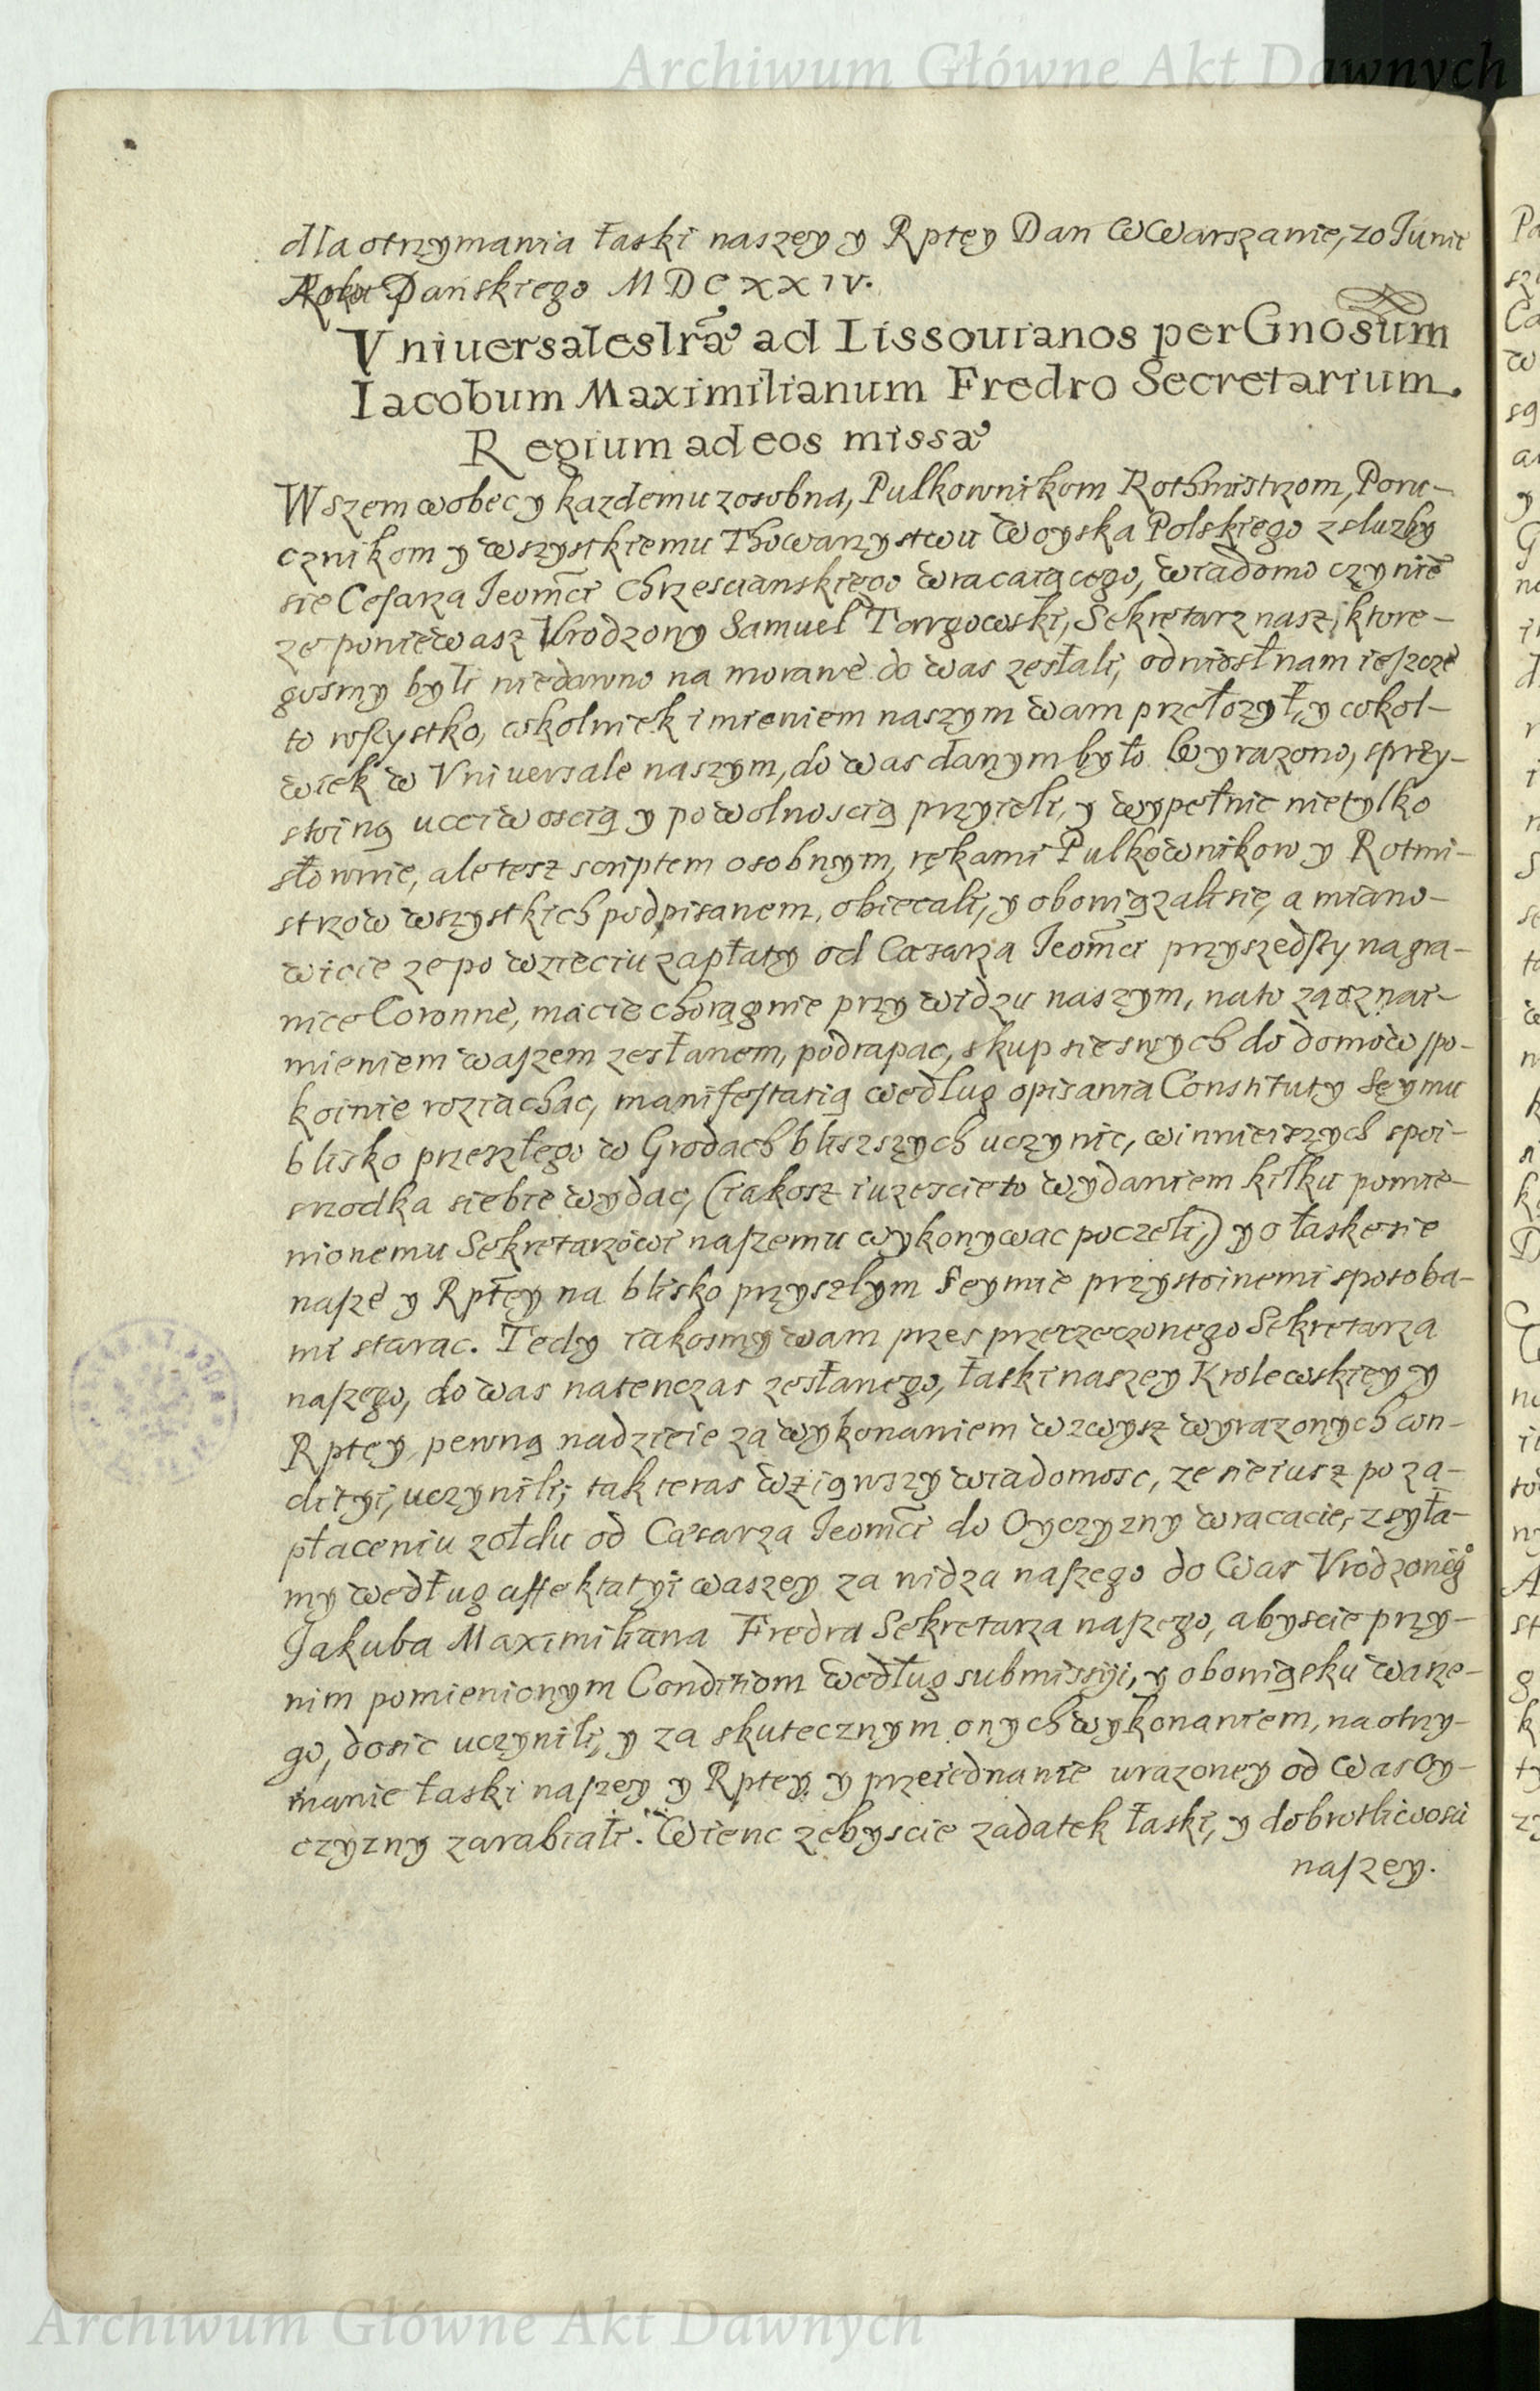 Archiwum Główne Akt Dawnych
dla otrzymania łaski naszey y Rptey Dan w Warszawie, 20 Junii
Roku Pańskiego MDCXXIV.
Vniuersales lræ ad Lissouianos per Gnosum
Iacobum Maximilianum Fredro Secretarium
Regium ad eos missæ
Wszem wobec y kazdemu zosobna, Pulkownikom Rothmistrzom, Poru-
cznikom y wszystkiemu Thowarzystwu Woyska Polskiego z sluzby
sie Cesarza Jeomci Chrzescianskiego wracaiącego, wiadomo czynie
ze poniewasz Vrodzony Samuel Targowski, Sekretarz nasz, ktore-
gosmy byli niedawno na morawe do was zesłali, odniosł nam iescze
to wszystko, cokolwiek imieniem naszym wam przełozył, y cokol-
wiek w Vniuersale naszym, do was danym było wyrazono, sprzy-
stoiną ucciwoscią y powolnoscią przyieli, y wypełnic nietylko
słownie, ale tesz scriptem osobnym, rękami Pulkownikow y Rotmi-
strzow wszystkich podpisanem, obiecali, y obowiązali się, a miano-
wicie ze po wzieciu zapłaty od Cæsarza Jeomci przyszedszy na gra-
nice Coronne, macie chorągwie przy widzu naszym, na to za oznai-
mieniem waszem zesłanem, podrapac, s kup sie swych do domow spo-
koinie roziachac, manifestatią wedlug opisania Constituty Seymu
blisko przeszłego w Grodach bliszszych uczynic, winnieiszych spoi-
srodka siebie wydac, (iakosz iuzescie to wydaniem kilku pomie-
nionemu Sekretarzowi naszemu wykonywac poczeli,) y o łaske sie
nasze y Rptey na blisko przyszłym Seymie przystoinemi sposoba-
mi starac. Tedy iakosmy wam przes przerzeczonego Sekretarza
naszego, do was natenczas zesłanego, łaski naszey Krolewskiey y
Rptey, pewną nadzieie za wykonaniem wzwysz wyrazonych con-
dityi, uczynili; tak teras wziąwszy wiadomosc, ze sie iusz po za-
płaceniu zołdu od Cæsarza Jeomci do Oyczyzny wracacie, zsyła-
my według affektatyi waszey za widza naszego do was Vrodzonego
Jakuba Maximiliana Fredra Sekretarza naszego, abyscie przy-
nim pomienionym Conditiom według submissyi, y obowiąsku wasze-
go, dosic uczynili, y za skutecznym onych wykonaniem, na otrzy-
manie łaski naszey y Rptey y przeiednanie urazoney od was Oy-
czyzny zarabiali. Wienc zebyscie zadatek łaski, y dobrotliwosci
naszey.
Archiwum Główne Akt Dawnych